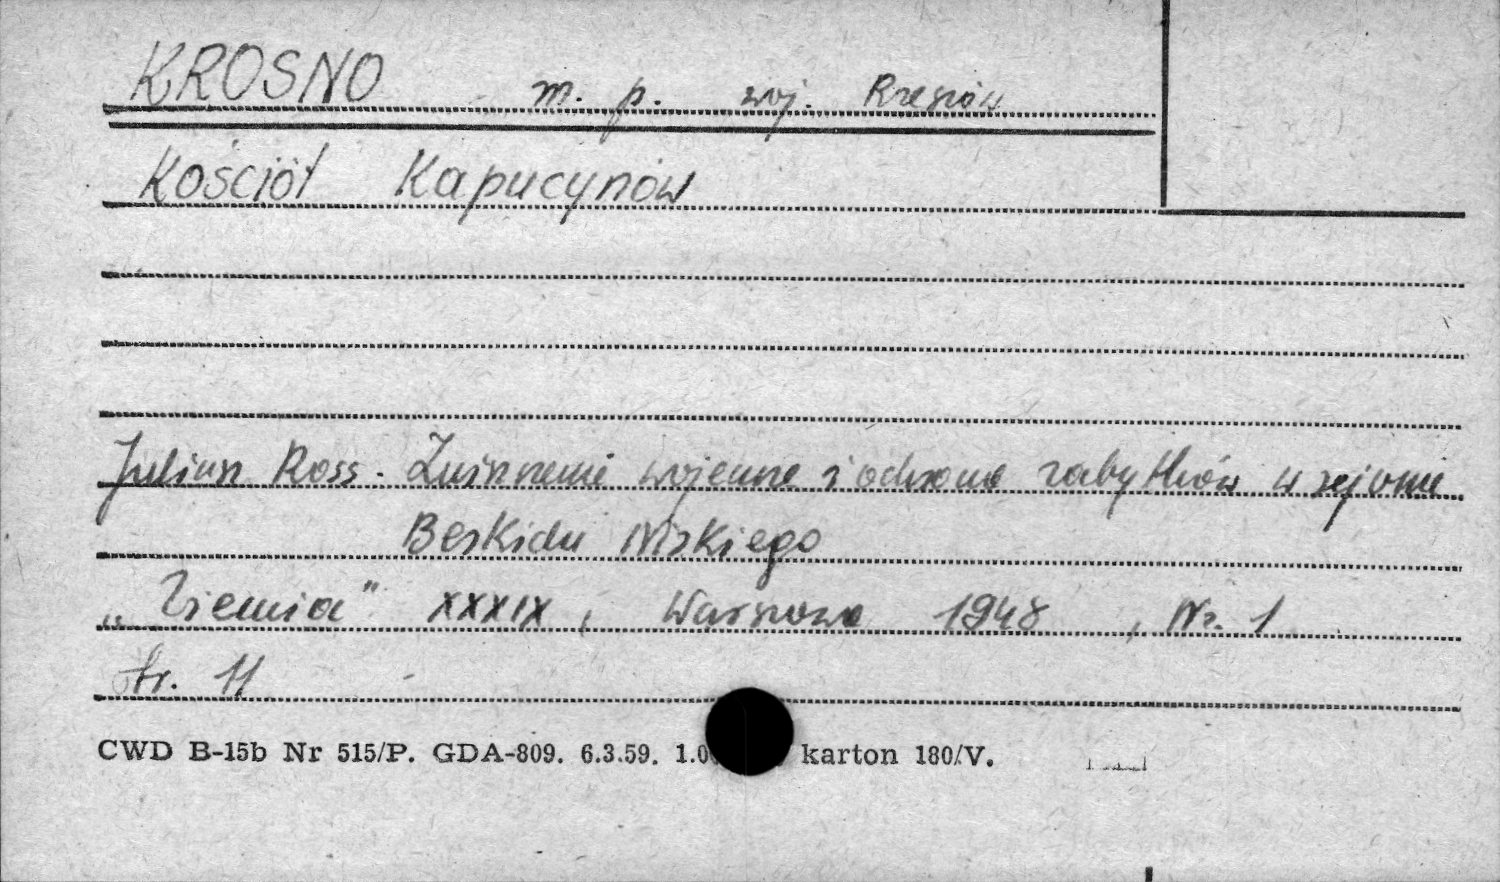 KROSNO m. p. woj. Rzeszów
Kościół Kapucynów
Julian Ross. Zniszczenia wojenne i ochrona zabytków w rejonie
Beskidu Niskiego
„Ziemia" XXXIX, Warszawa 1948, Nr. 1
str. 11
CWD B-15b Nr 515/P. GDA-809. 6.3.59. 1.0 karton 180/V.